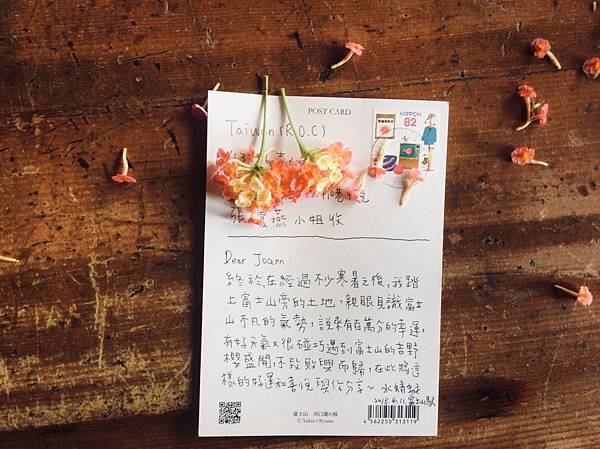 POST CARD
NIPPON
82
Taiwan (R.O.C)
張 燕 小姐收
Dear Joann:
終於,在經過不少寒暑之後,我踏
上富士山旁的土地,親眼見識富士
山不凡的氣勢,說來有百萬分的幸運,
有好天氣又很碰巧遇到富士山的吉野
櫻盛開,不致敗興而歸,在此將這
樣的好運和喜悅與你分享~ 水蜻蜓
2018.4.11 富士山駅
富士山 河口湖の桜
© Yukio Ohyama
4 562250 313119